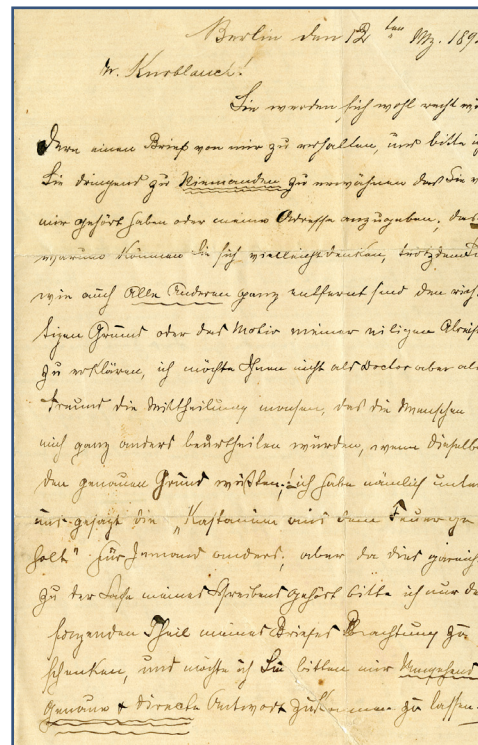 Berlin den 12 ten Mz. 189
Dr. Knoblauch!
Sie werden sich wohl recht wu
dern einen Brief von mir zu erhalten, und bitte i
Sie dringend zu Niemanden zu erwähnen das Sie v
mir gehört haben oder meine Adresse anzugeben; das
warum können Sie sich vielleicht denken, trotzdem Si
wie auch Alle Anderen ganz entfernt sind den rich
tigen Grund oder das Motiv meiner eiligen Abreise
zu erklären, ich möchte Ihnen nicht als Doctor aber al
Freund die Mittheilung machen, das die Menschen
mich ganz anders beurtheilen würden, wenn dieselbe
den genauen Grund wüßten; ich habe nämlich unte
uns gesagt die „Kastanien aus dem Feuer ge
holt" für Jemand anders, aber da dies garnich
zu der Sache meines Schreibens gehört bitte ich nur de
folgenden Theil meines Briefes Beachtung zu
schenken, und möchte ich Sie bitten mir Umgehend
Genaue & directe Antwort zukommen zu lassen.